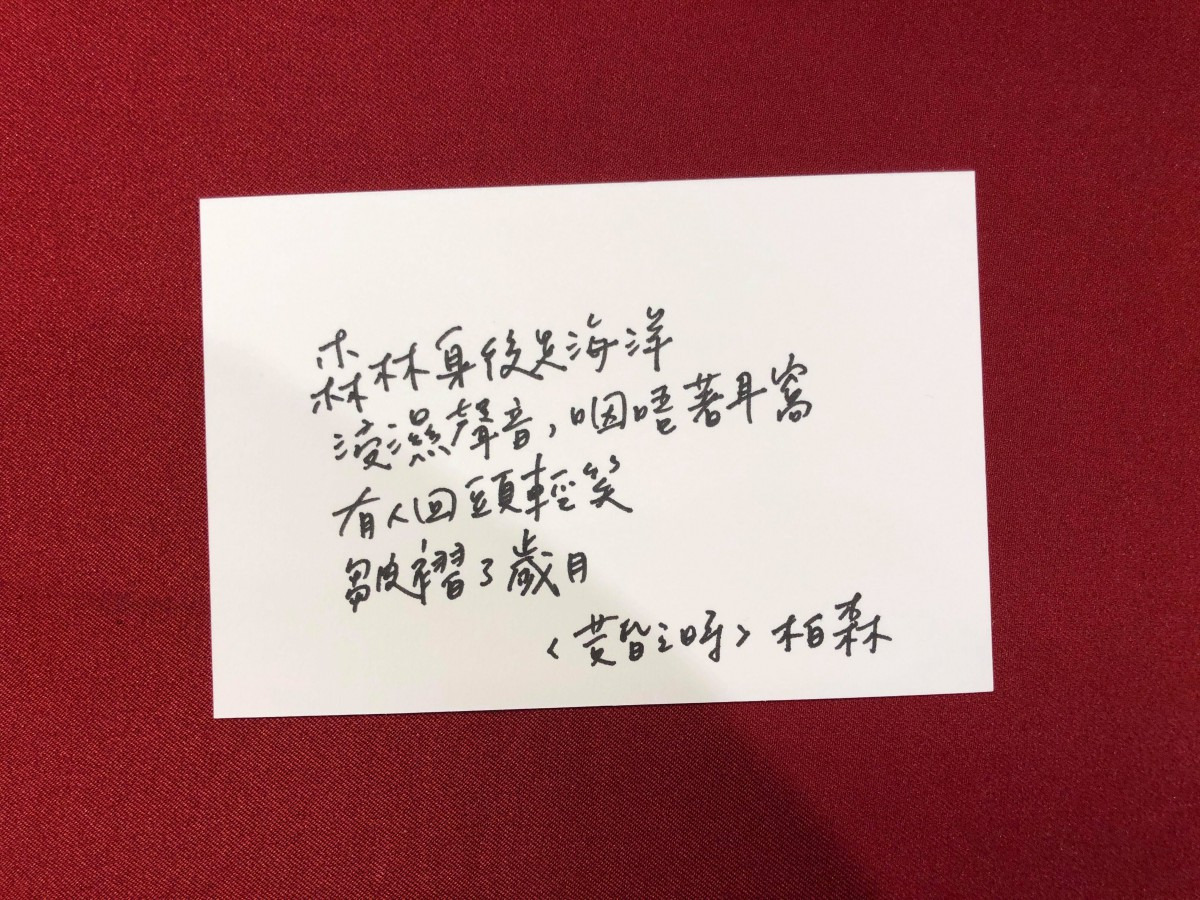 森林身後是海洋
浸濕聲音，咽唔著耳窩
有人回頭輕笑
皺褶了歲月
〈黃昏之時〉柏森